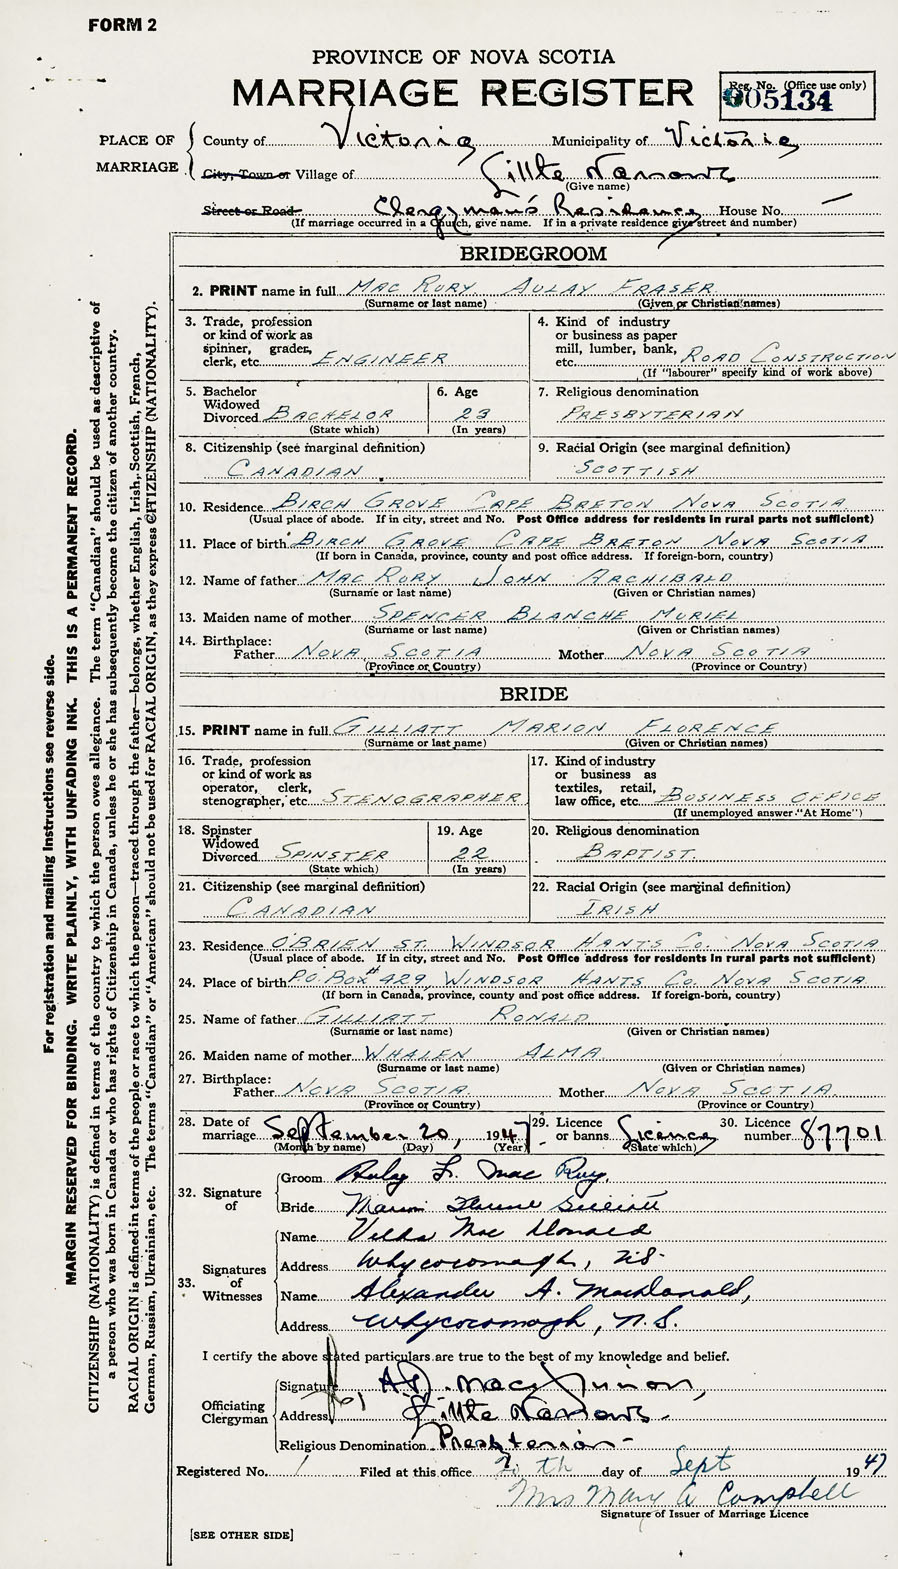 FORM 2
PROVINCE OF NOVA SCOTIA
MARRIAGE REGISTER
Reg. No. (Office use only)
005134
PLACE OF MARRIAGE
County of Victoria Municipality of Victoria
City, Town or Village of Little Narrows
(Give name)
Street or Road Clergyman's Residence House No. —
(If marriage occurred in a Church, give name. If in a private residence give street and number)
BRIDEGROOM
2. PRINT name in full MAC RURY AULAY FRASER
(Surname or last name) (Given or Christian names)
3. Trade, profession or kind of work as spinner, grader, clerk, etc. ENGINEER
4. Kind of industry or business as paper mill, lumber, bank, etc. ROAD CONSTRUCTION
(If "labourer" specify kind of work above)
5. Bachelor Widowed Divorced BACHELOR
(State which)
6. Age 23
(In years)
7. Religious denomination PRESBYTERIAN
8. Citizenship (see marginal definition) CANADIAN
9. Racial Origin (see marginal definition) SCOTTISH
10. Residence BIRCH GROVE CAPE BRETON NOVA SCOTIA
(Usual place of abode. If in city, street and No. Post Office address for residents in rural parts not sufficient)
11. Place of birth BIRCH GROVE CAPE BRETON NOVA SCOTIA
(If born in Canada, province, county and post office address. If foreign-born, country)
12. Name of father MAC RURY JOHN ARCHIBALD
(Surname or last name) (Given or Christian names)
13. Maiden name of mother SPENCER BLANCHE MURIEL
(Surname or last name) (Given or Christian names)
14. Birthplace:
Father NOVA SCOTIA Mother NOVA SCOTIA
(Province or Country) (Province or Country)
BRIDE
15. PRINT name in full GILLIATT MARION FLORENCE
(Surname or last name) (Given or Christian names)
16. Trade, profession or kind of work as operator, clerk, stenographer, etc. STENOGRAPHER
17. Kind of industry or business as textiles, retail, law office, etc. BUSINESS OFFICE
(If unemployed answer "At Home")
18. Spinster Widowed Divorced SPINSTER
(State which)
19. Age 22
(In years)
20. Religious denomination BAPTIST.
21. Citizenship (see marginal definition) CANADIAN
22. Racial Origin (see marginal definition) IRISH
23. Residence O'BRIEN ST. WINDSOR HANTS CO. NOVA SCOTIA
(Usual place of abode. If in city, street and No. Post Office address for residents in rural parts not sufficient)
24. Place of birth P.O. BOX # 429, WINDSOR HANTS CO. NOVA SCOTIA
(If born in Canada, province, county and post office address. If foreign-born, country)
25. Name of father GILLIATT RONALD
(Surname or last name) (Given or Christian names)
26. Maiden name of mother WHALEN ALMA
(Surname or last name) (Given or Christian names)
27. Birthplace:
Father NOVA SCOTIA Mother NOVA SCOTIA
(Province or Country) (Province or Country)
28. Date of marriage September 20, 1947
(Month by name) (Day) (Year)
29. Licence or banns Licence
(State which)
30. Licence number 87701
32. Signature of
Groom Aulay F. Mac Rury.
Bride Marion Florence Gilliatt
33. Signatures of Witnesses
Name Velda Mac Donald
Address Whycocomagh, N.S.
Name Alexander A. MacDonald,
Address Whycocomagh, N.S.
I certify the above stated particulars are true to the best of my knowledge and belief.
Officiating Clergyman
Signature A.D. MacKinnon,
Address Little Narrows.
Religious Denomination Presbyterian
Registered No. 1 Filed at this office 20th day of Sept 1947
Mrs Mary A Campbell
Signature of Issuer of Marriage Licence
[SEE OTHER SIDE]
For registration and mailing instructions see reverse side.
MARGIN RESERVED FOR BINDING. WRITE PLAINLY, WITH UNFADING INK. THIS IS A PERMANENT RECORD.
CITIZENSHIP (NATIONALITY) is defined in terms of the country to which the person owes allegiance. The term "Canadian" should be used as descriptive of
a person who was born in Canada or who has rights of Citizenship in Canada, unless he or she has subsequently become the citizen of another country.
RACIAL ORIGIN is defined in terms of the people or race to which the person—traced through the father—belongs, whether English, Irish, Scottish, French,
German, Russian, Ukrainian, etc. The terms "Canadian" or "American" should not be used for RACIAL ORIGIN, as they express CITIZENSHIP (NATIONALITY).